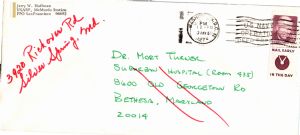 Jerry W. Huffman
USARP, McMurdo Station
FPO San Francisco 96692
3920 Rickover Rd
Silver Spring, Md.
PM
MAIL EARLY
IN THE DAY
Dr. Mort Turner
Suburban Hospital (Room 435)
8600 Old Georgetown Rd
Bethesda, Maryland
20014